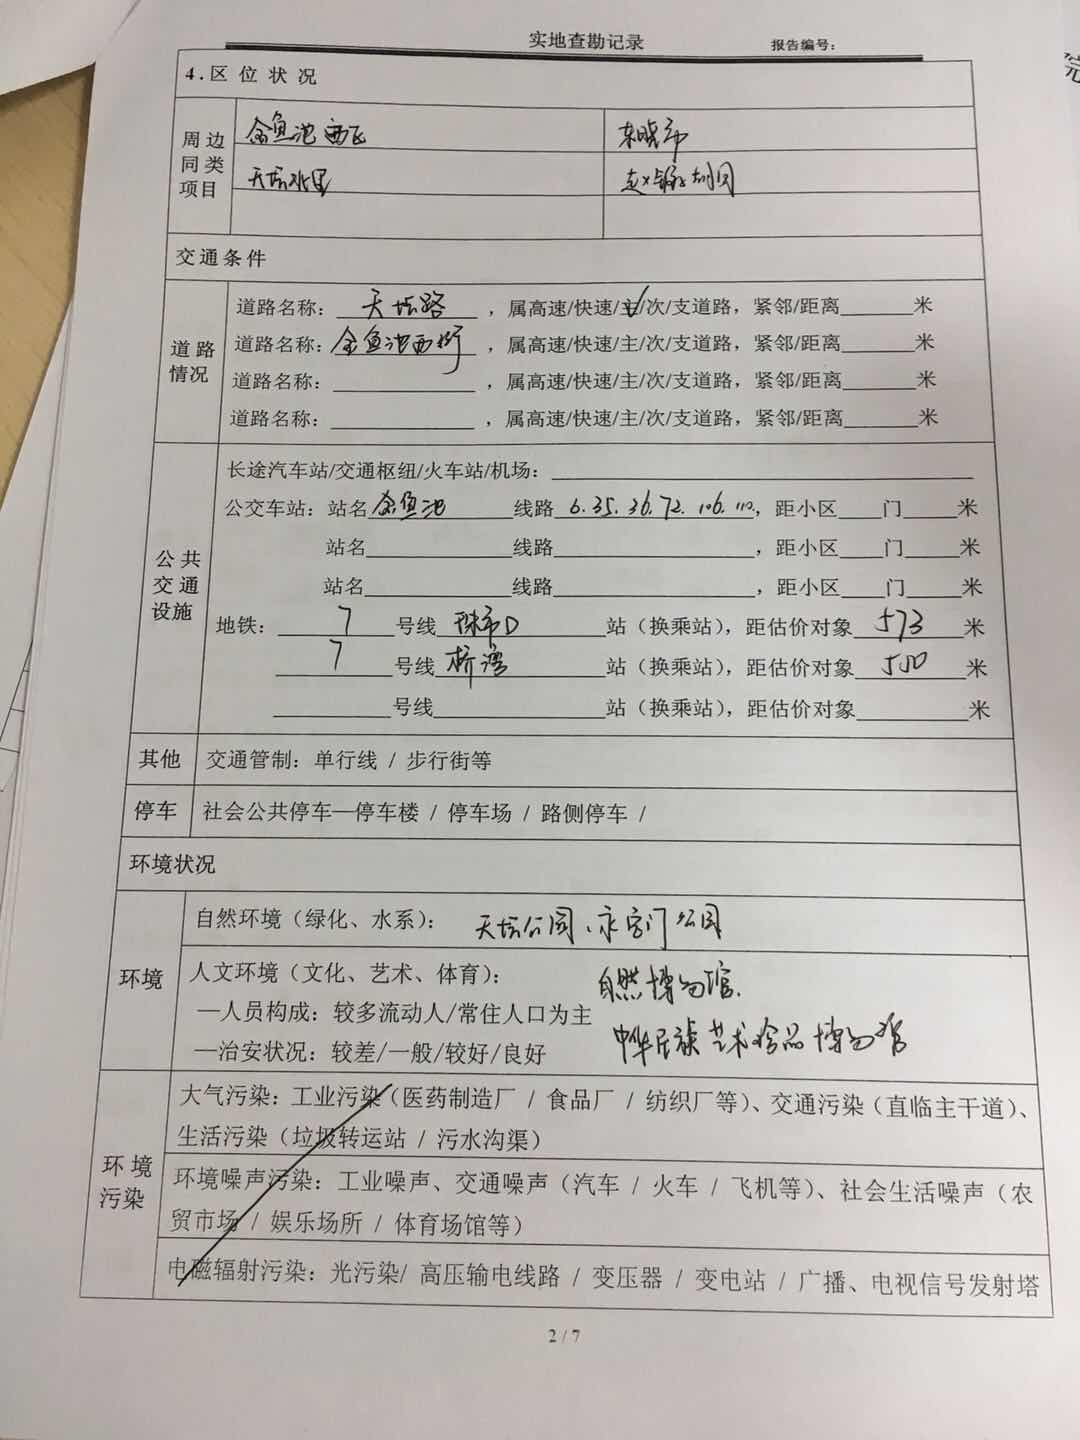 实地查勘记录 报告编号：
4.区位状况
周边同类项目 金鱼池西区 东晓市
天坛北里 赵锥子胡同
交通条件
道路情况
道路名称：天坛路，属高速/快速/主/次/支道路，紧邻/距离______米
道路名称：金鱼池西街，属高速/快速/主/次/支道路，紧邻/距离______米
道路名称：__________，属高速/快速/主/次/支道路，紧邻/距离______米
道路名称：__________，属高速/快速/主/次/支道路，紧邻/距离______米
公共交通设施
长途汽车站/交通枢纽/火车站/机场：__________
公交车站：站名金鱼池 线路6.35.36.72.106. ，距小区____门____米
站名__________线路__________，距小区____门____米
站名__________线路__________，距小区____门____米
地铁：7号线珠市口站（换乘站），距估价对象573米
7号线桥湾站（换乘站），距估价对象550米
______号线__________站（换乘站），距估价对象______米
其他 交通管制：单行线 / 步行街等
停车 社会公共停车—停车楼 / 停车场 / 路侧停车 /
环境状况
环境
自然环境（绿化、水系）： 天坛公园、永定门公园
人文环境（文化、艺术、体育）： 自然博物馆.
—人员构成：较多流动人/常住人口为主
—治安状况：较差/一般/较好/良好 中华民族艺术珍品博物馆
环境污染
大气污染：工业污染（医药制造厂 / 食品厂 / 纺织厂等）、交通污染（直临主干道）、
生活污染（垃圾转运站 / 污水沟渠）
环境噪声污染：工业噪声、交通噪声（汽车 / 火车 / 飞机等）、社会生活噪声（农
贸市场 / 娱乐场所 / 体育场馆等）
电磁辐射污染：光污染/ 高压输电线路 / 变压器 / 变电站 / 广播、电视信号发射塔
2 / 7